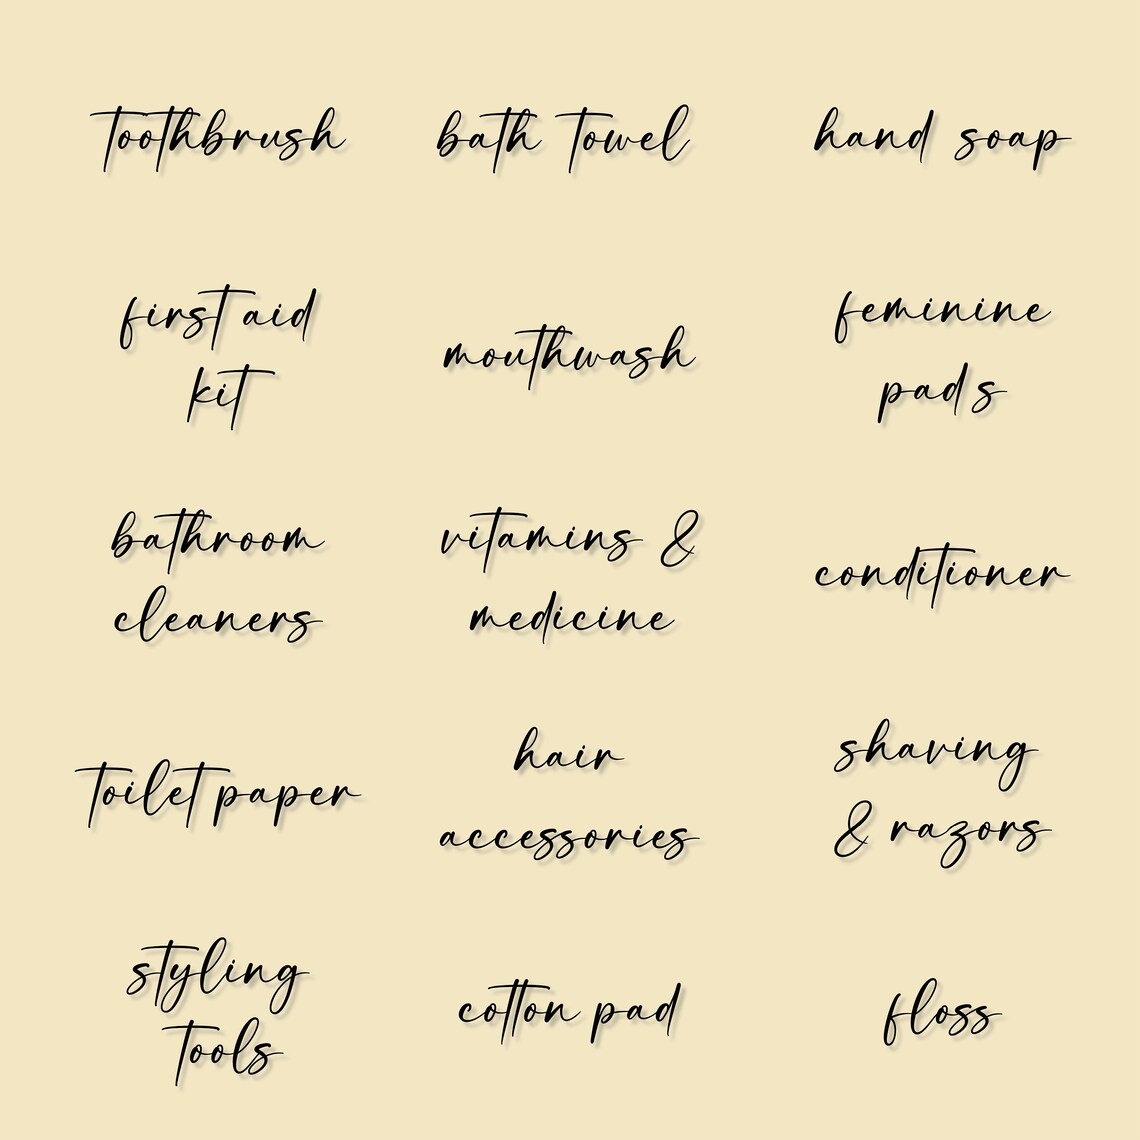 toothbrush
bath towel
hand soap
first aid
kit
mouthwash
feminine
pads
bathroom
cleaners
vitamins &
medicine
conditioner
toilet paper
hair
accessories
shaving
& razors
styling
tools
cotton pad
floss